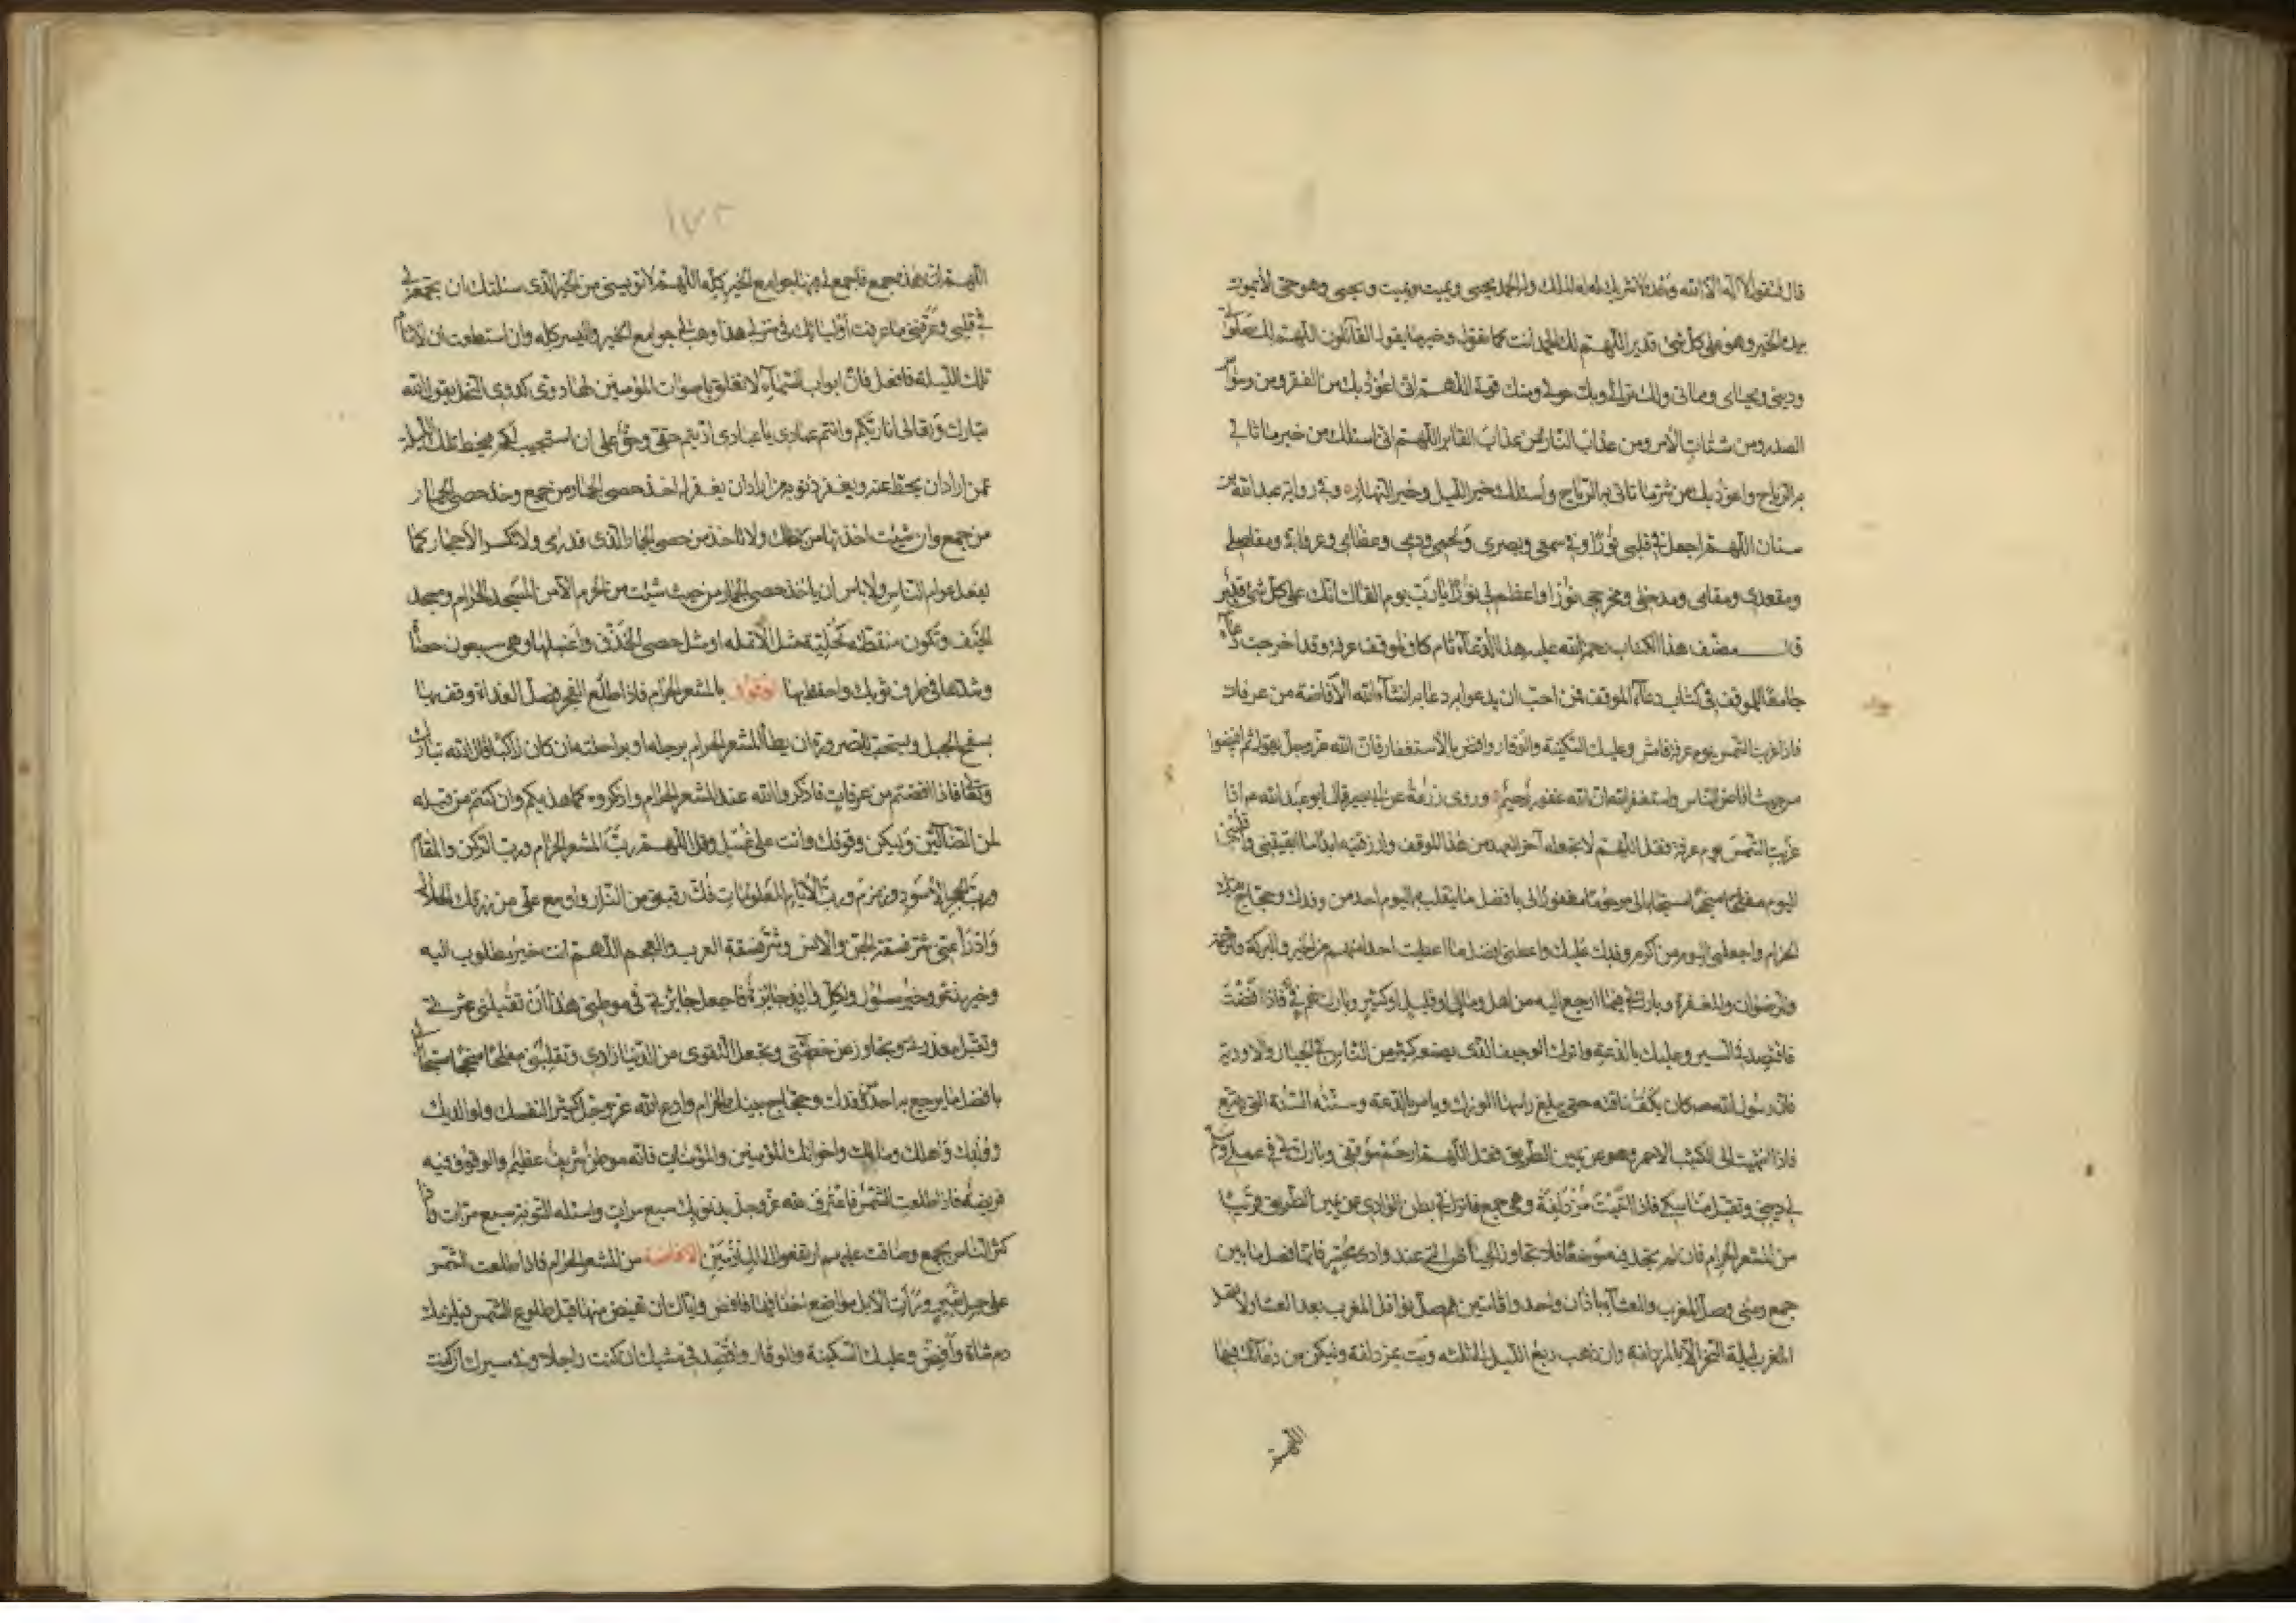 قال فتقول لا اله الا الله وحده لا شريك له له الملك وله الحمد يحيى ويميت ويميت ويحيى وهو حى لا يموت
بيده الخير وهو على كل شئ قدير اللهم لك الحمد انت كما تقول وخير ما يقول القائلون اللهم لك صلوتى
ودينى ومحياى ومماتى ولك تراثى وبك حولى ومنك قوتى اللهم انى اعوذ بك من الفقر ومن وسواس
الصدر ومن شتات الامر ومن عذاب النار ومن عذاب القبر اللهم انى اسئلك من خير ما تاتى
به الرياح واعوذ بك من شر ما تاتى به الرياح وأسئلك خير الليل وخير النهار وفى رواية عبد الله بن
سنان اللهم اجعل فى قلبى نورا وفى سمعى وبصرى ولحمى ودمى وعظامى وعروقى ومفاصلى
ومقعدى ومقامى ومدخلى ومخرجى نورا واعظم لى نورا يا رب يوم القاك انك على كل شئ قدير
قال مصنف هذا الكتاب رحمة الله عليه هذا الدعاء تام كاف لموقف عرفة وقد اخرجت دعاء
جامعا للموقف فى كتاب دعاء الموقف فمن احب ان يدعو به دعا به انشاء الله الافاضة من عرفات
فاذا غربت الشمس يوم عرفة فامش وعليك السكينة والوقار وافض بالاستغفار فان الله عز وجل يقول ثم افيضوا
من حيث افاض الناس واستغفروا الله ان الله غفور رحيم وروى زرعة عن ابى بصير قال قال ابو عبد الله ع اذا
غربت الشمس يوم عرفة فقل اللهم لا تجعله آخر العهد من هذا الموقف وارزقنيه ابدا ما ابقيتنى واقلبنى
اليوم مفلحا منجحا مستجابا لى مرحوما مغفورا لى بافضل ما ينقلب به اليوم احد من وفدك وحجاج بيتك
الحرام واجعلنى اليوم من اكرم وفدك عليك واعطنى افضل ما اعطيت احدا منهم من الخير والبركة والرحمة
والرضوان والمغفرة وبارك لى فيما ارجع اليه من اهل ومال او قليل او كثير وبارك لهم فى فاذا افضت
فاقتصد فى السير وعليك بالدعة واترك الوجيف الذى يصنع كثير من الناس فى الجبال والاودية
فان رسول الله ص كان يكف ناقته حتى يبلغ راسها الورك ويامر بالدعة وسنته السنة التى تتبع
فاذا انتهيت الى الكثيب الاحمر وهو عن يمين الطريق فقل اللهم ارحم موقفى وبارك لى فى عملى وسلم
لى دينى وتقبل مناسكى فاذا اتيت مزدلفة وهى جمع فانزل فى بطن الوادى عن يمين الطريق قريبا
من المشعر الحرام فان لم تجد فيه موضعا فلا تجاوز الحياض التى عند وادى محسر فانها فصل ما بين
جمع ومنى وصل المغرب والعشاء باذان واحد واقامتين ثم صل نوافل المغرب بعد العشاء ولا تصل
المغرب ليلة النحر الا بالمزدلفة وان ذهب ربع الليل الى ثلثه وبت بمزدلفة وليكن من دعائك فيها
اللهم
١٧٢
اللهم هذه جمع فاجمع لى فيها جوامع الخير كله اللهم لا تويسنى من الخير الذى سئلتك ان تجمعه لى
فى قلبى وعرفنى ما عرفت اوليائك فى منزلى هذا وهب لى جوامع الخير واليسر كله وان استطعت ان لا تنام
تلك الليلة فافعل فان ابواب السماء لا تغلق باصوات المؤمنين لها دوى كدوى النحل يقول الله
تبارك وتعالى انا ربكم وانتم عبادى يا عبادى اديتم حقى وحق على ان استجيب لكم فيحط تلك الليلة
عمن اراد ان يحط عنه ويغفر ذنوب من اراد ان يغفر له اخذ حصى الجمار من جمع وخذ حصى الجمار
من جمع وان شئت اخذتها من رحلك ولا تاخذ من حصى الجمار الذى قد رمى ولا تكسر الاحجار كما
يفعل عوام الناس ولا باس ان تاخذ حصى الجمار من حيث شئت من الحرم الا من المسجد الحرام ومسجد
الخيف وتكون منقطة كحلية مثل الانملة او مثل حصى الخذف واغسلها وهى سبعون حصاة
وشدها فى طرف ثوبك واحتفظ بها الوقوف بالمشعر الحرام فاذا طلع الفجر فصل الغداة وقف بها
بسفح الجبل ويستحب للصرورة ان يطأ المشعر الحرام برجله او براحلته ان كان راكبا قال الله تبارك
وتعالى فاذا افضتم من عرفات فاذكروا الله عند المشعر الحرام واذكروه كما هديكم وان كنتم من قبله
لمن الضالين وليكن وقوفك وانت على غسل وقل اللهم رب المشعر الحرام ورب الركن والمقام
ورب الحجر الاسود وزمزم ورب الايام المعلومات فك رقبتى من النار واوسع على من رزقك الحلال
وادرأ عنى شر فسقة الجن والانس وشر فسقة العرب والعجم اللهم انت خير مطلوب اليه
وخير مدعو وخير مسئول ولكل وافد جائزة فاجعل جائزتى فى موطنى هذا ان تقيلنى عثرتى
وتقبل معذرتى وتجاوز عن خطيئتى وتجعل التقوى من الدنيا زادى وتقلبنى مفلحا منجحا مستجابا لى
بافضل ما يرجع به احد من وفدك وحجاج بيتك الحرام وادع الله عز وجل كثيرا لنفسك ولوالديك
وولدك واهلك ومالك واخوانك المؤمنين والمؤمنات فانه موطن شريف عظيم والوقوف فيه
فريضة فاذا طلعت الشمس فاعترف لله عز وجل بذنوبك سبع مرات واسئله التوبة سبع مرات واذا
كثر الناس بجمع وضاقت عليهم ارتفعوا الى المأزمين الافاضة من المشعر الحرام فاذا طلعت الشمس
على جبل ثبير ورأت الابل مواضع اخفافها فافض واياك ان تفيض منها قبل طلوع الشمس فيلزمك
دم شاة وافض وعليك السكينة والوقار واقتصد فى مشيك ان كنت راجلا وفى مسيرك ان كنت